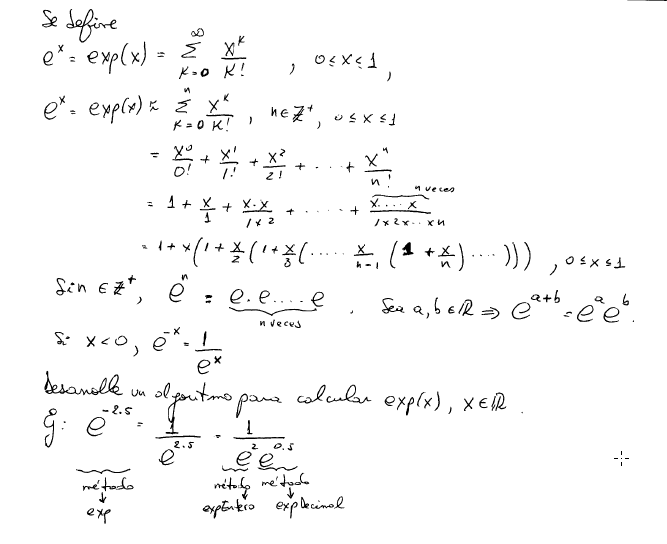 Se define
e^x = exp(x) = ∞ Σ K=0 x^K / K! , 0≤x≤1,
e^x = exp(x) ≈ n Σ K=0 x^K / K! , n∈Z⁺, 0≤x≤1
= x^0/0! + x^1/1! + x^2/2! + ... + x^n/n!
= 1 + x/1 + x.x/1x2 + ..... + x...x/1x2x..xn n veces
= 1 + x(1 + x/2(1 + x/3(..... x/n-1 (1 + x/n) ....))) , 0≤x≤1
Si n ∈ Z⁺, e^n = e.e....e . Sea a,b ∈ R ⇒ e^(a+b) = e^a e^b.
n veces
Si x<0, e^-x = 1/e^x
Desarrolle un algoritmo para calcular exp(x), x∈R.
Ej: e^-2.5 = 1/e^2.5 = 1/e^2 e^0.5
método método método
↓ ↓ ↓
exp expEntero expDecimal